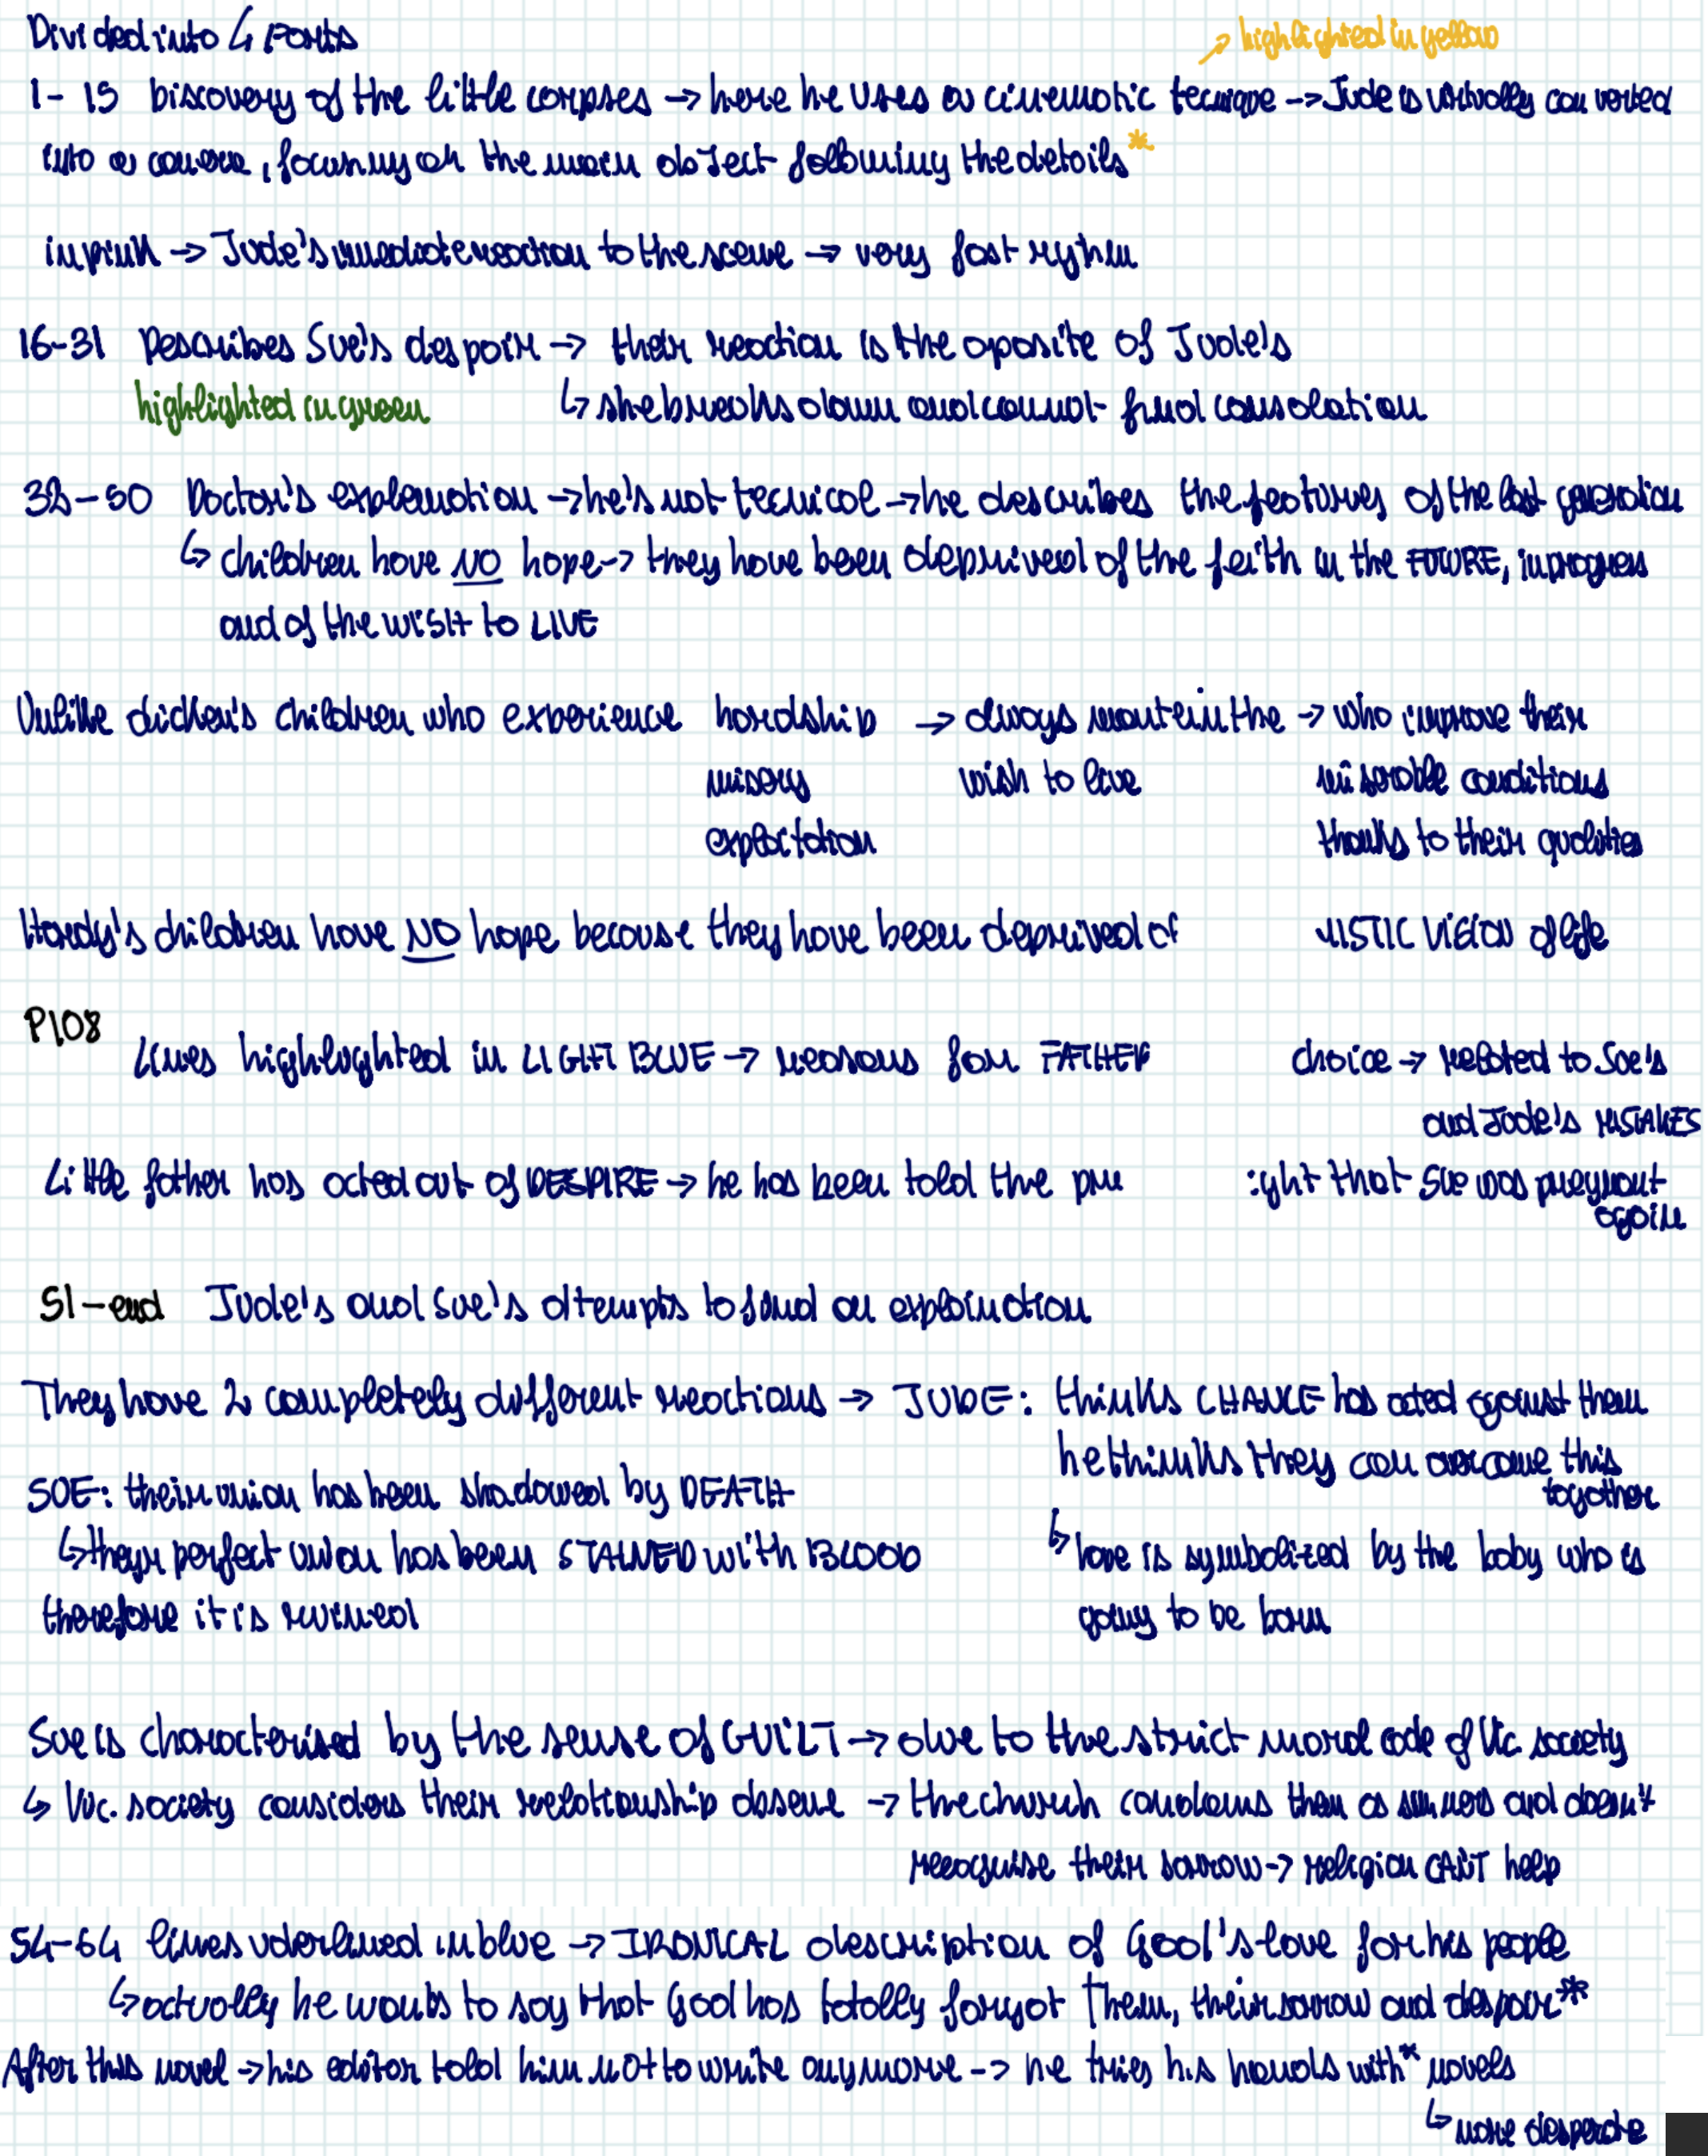 Divided into 4 parts
highlighted in yellow
1-15 Discovery of the little corpses → here he uses a cinematic tecnique → Jude is virtually converted
into a camera, focusing on the main object following the details*
in pink → Jude's imediate reaction to the scene → very fast rythm
16-31 Describes Sue's despair → their reaction is the oposite of Jude's
highlighted in green ↳ she breaks down and cannot find consolation
32-50 Doctor's explanation → he's not tecnical → he describes the features of the last generation
↳ children have NO hope → they have been deprived of the feith in the FUTURE, in progress
and of the wISH to LIVE
Unlike dicken's children who experience hardship → always mantein the → who improve their
misery wish to live miserable conditions
exploitation thanks to their qualities
Hardy's children have NO hope because they have been deprived of LISTIC VISION of life
P108
Lines highlughted in LIGHT BLUE → reasons for FATHER choice → related to Sue's
and Jude's MISTAKES
Little father has acted out of DESPIRE → he has been told the ight that Sue was pregnant
again
51-end Jude's and Sue's attempts to find an explaination
They have 2 completely different reactions → JUDE: thinks CHANCE has acted against them
he thinks they can overcome this
together
SUE: their union has been shadowed by DEATH
↳ theyr perfect union has been STAINED with BLOOD ↳ love is symbolized by the baby who is
therefore it is ruined going to be born
Sue is characterised by the sense of GUILT → due to the strict moral code of Vic. society
↳ Vic. society considers their relationship obsene → the church condems them as sinners and doesn't
recognise their sorrow → religion CAN'T help
54-64 lines uderlined in blue → IRONICAL description of God's love for his people
↳ actually he wants to say that God has totally forgot them, their sorrow and despair*
After this novel → his editor told him not to write anymore → he tries his hands with* novels
↳ more desperate